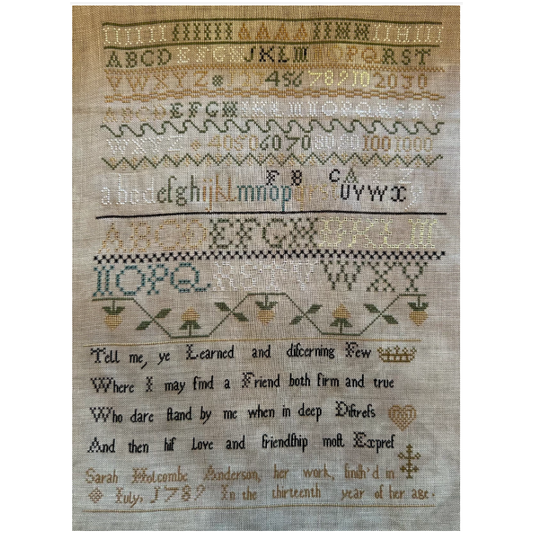 ABCD EFGH JKLM OPQRST
VWXYZ 456 789 10 20 30
ABCD EFGH IKLM OPQRSTV
WXYZ 40 50 60 70 80 90 100 1000
F B C A Z
abcd efgh ijkl mnop UVWX y
ABCD EFGH IKLM
NOPQ RSTV WXY
Tell me, ye Learned and diſcerning Few
Where I may find a Friend both firm and true
Who dare ſtand by me when in deep Diſtreſs
And then hiſ Love and friendſhip moſt Expreſ
Sarah Holcombe Anderson, her work, finiſh'd in
July, 1789 In the thirteenth year of her age.